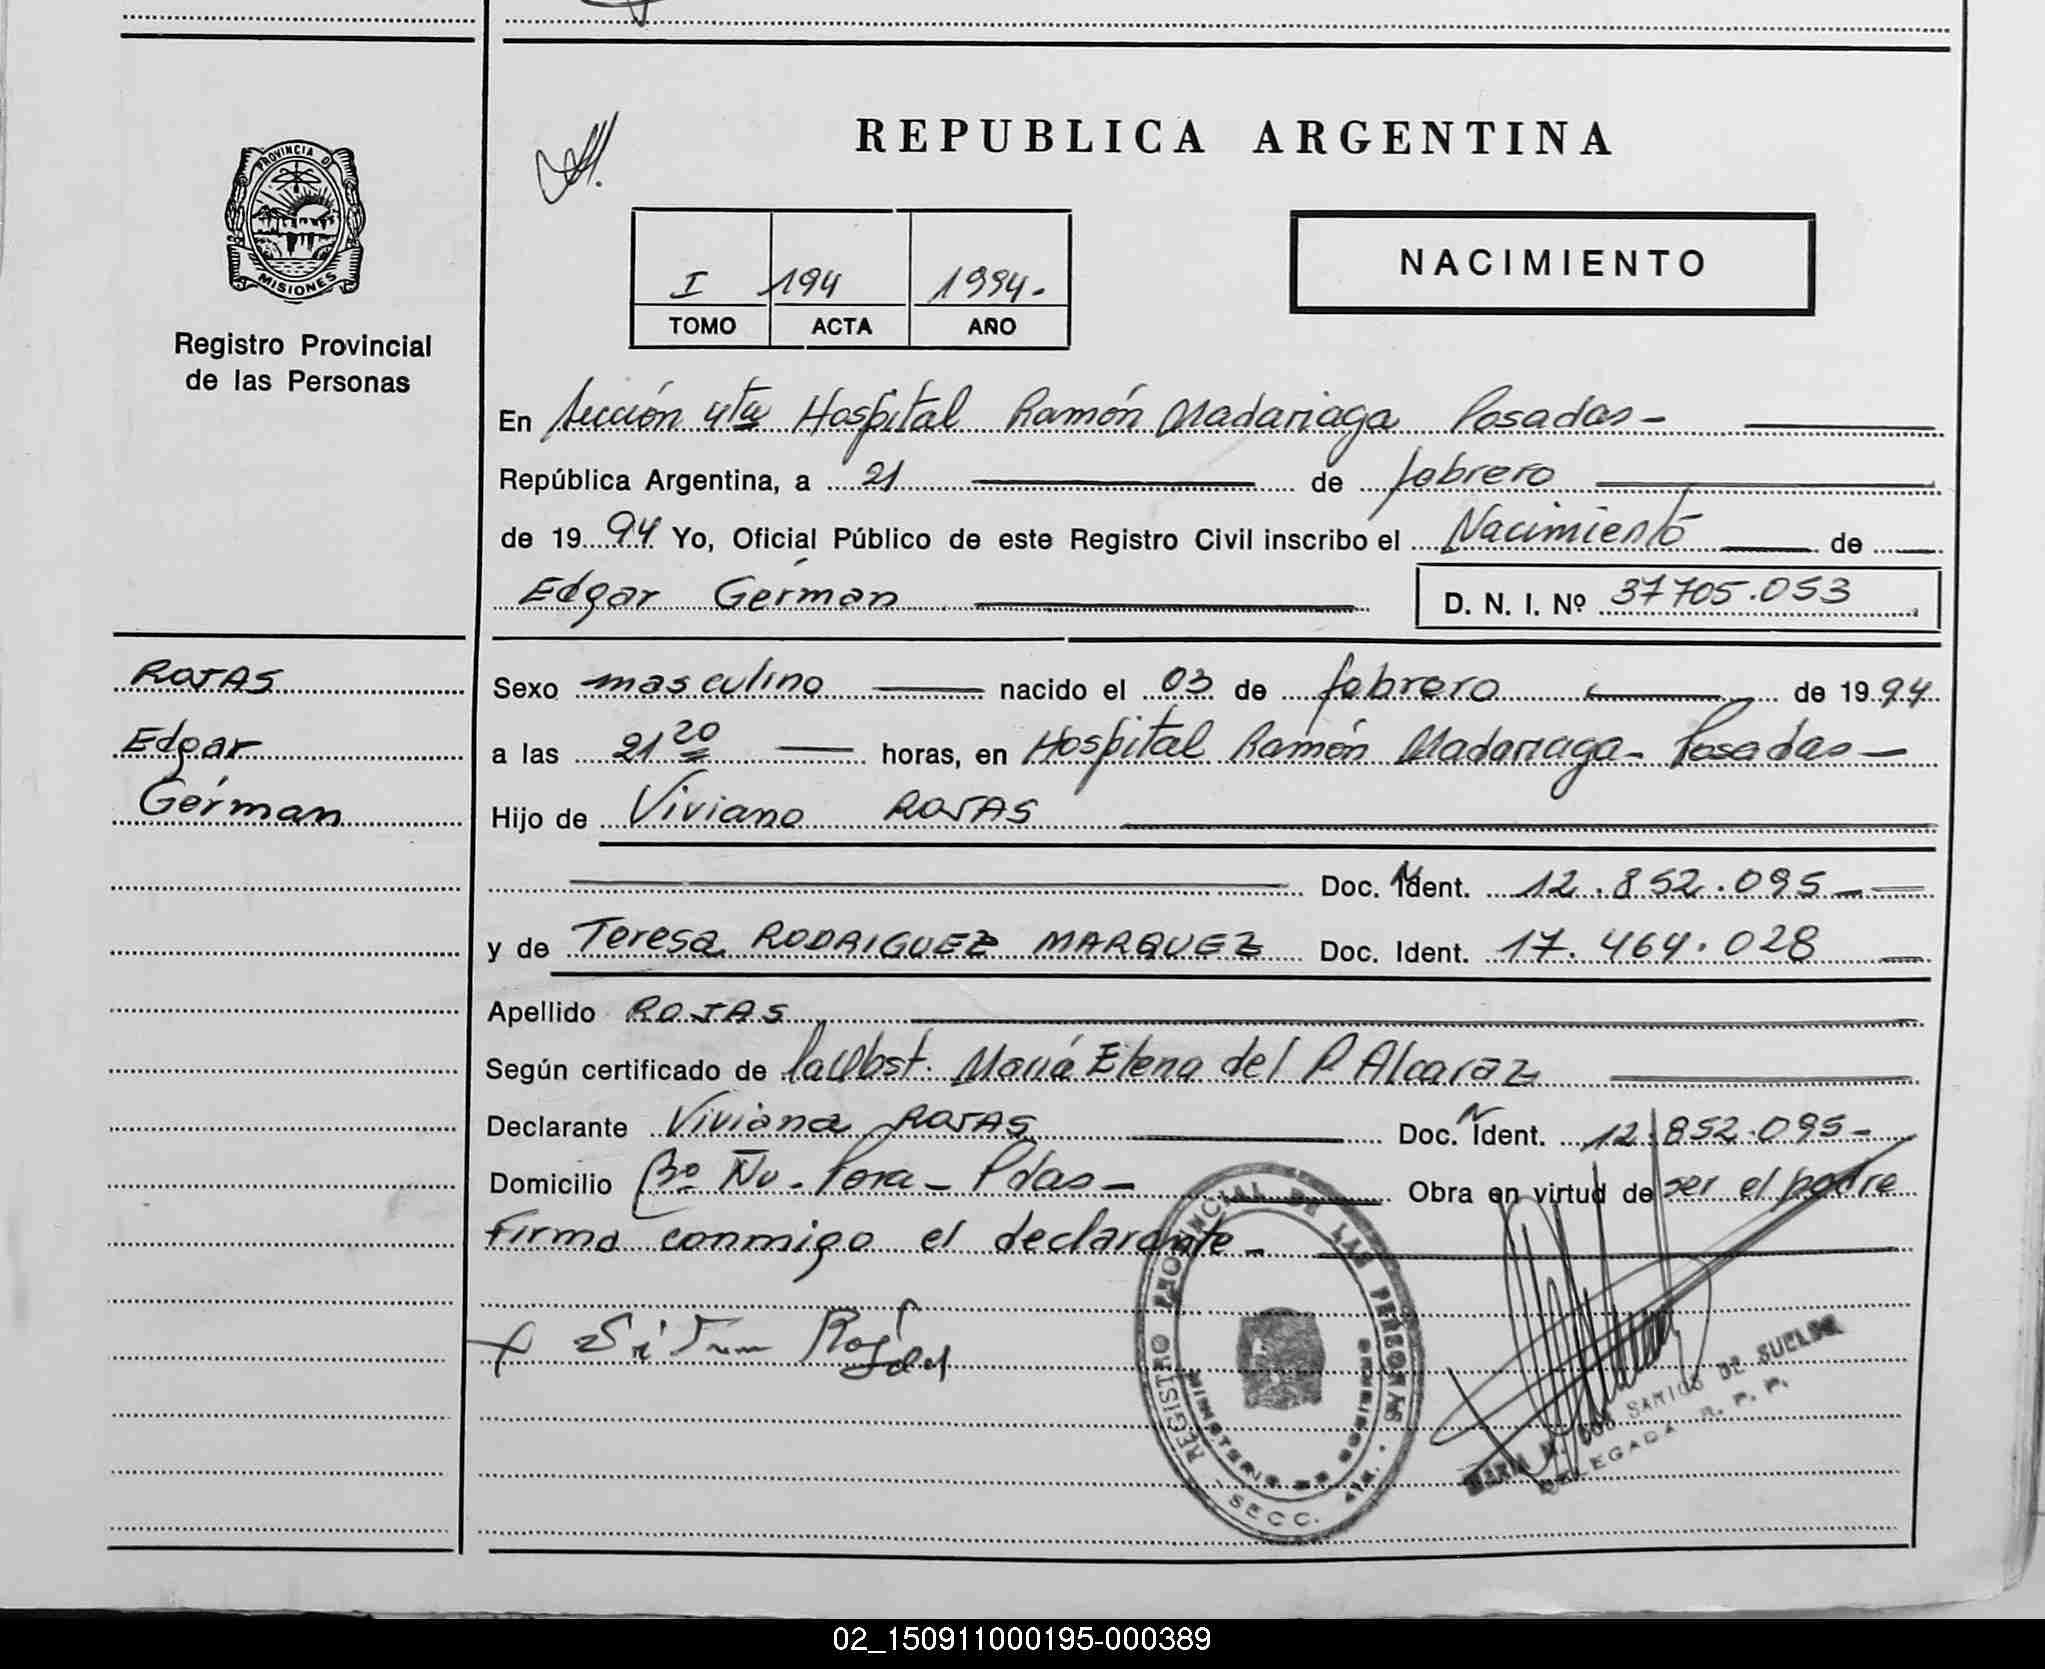 PROVINCIA DE
MISIONES
Registro Provincial
de las Personas
REPUBLICA ARGENTINA
NACIMIENTO
I 194 1994.-
TOMO ACTA AÑO
En Sección 4ta Hospital Ramón Madariaga Posadas -
República Argentina, a 21 de febrero
de 1994 Yo, Oficial Público de este Registro Civil inscribo el Nacimiento de
Edgar Gérman D. N. I. Nº 37705.053
ROJAS
Edgar
Gérman
Sexo masculino nacido el 03 de febrero de 1994
a las 21 20 horas, en Hospital Ramón Madariaga - Posadas -
Hijo de Viviano ROJAS
Doc. N Ident. 12.852.095 -
y de Teresa RODRIGUEZ MARQUEZ Doc. Ident. 17.464.028
Apellido ROJAS
Según certificado de la Obst. María Elena del P. Alcaraz
Declarante Viviano ROJAS Doc. N Ident. 12.852.095 -
Domicilio Bº Ñu - Pora - Pdas - Obra en virtud de ser el padre
Firma conmigo el declarante -
Rojas
REGISTRO PROVINCIAL DE LAS PERSONAS
MINISTERIO DE GOBIERNO
SECC. 4ta.
MARIA M. DOS SANTOS DE SUELDO
DELEGADA R. P. P.
02_150911000195-000389